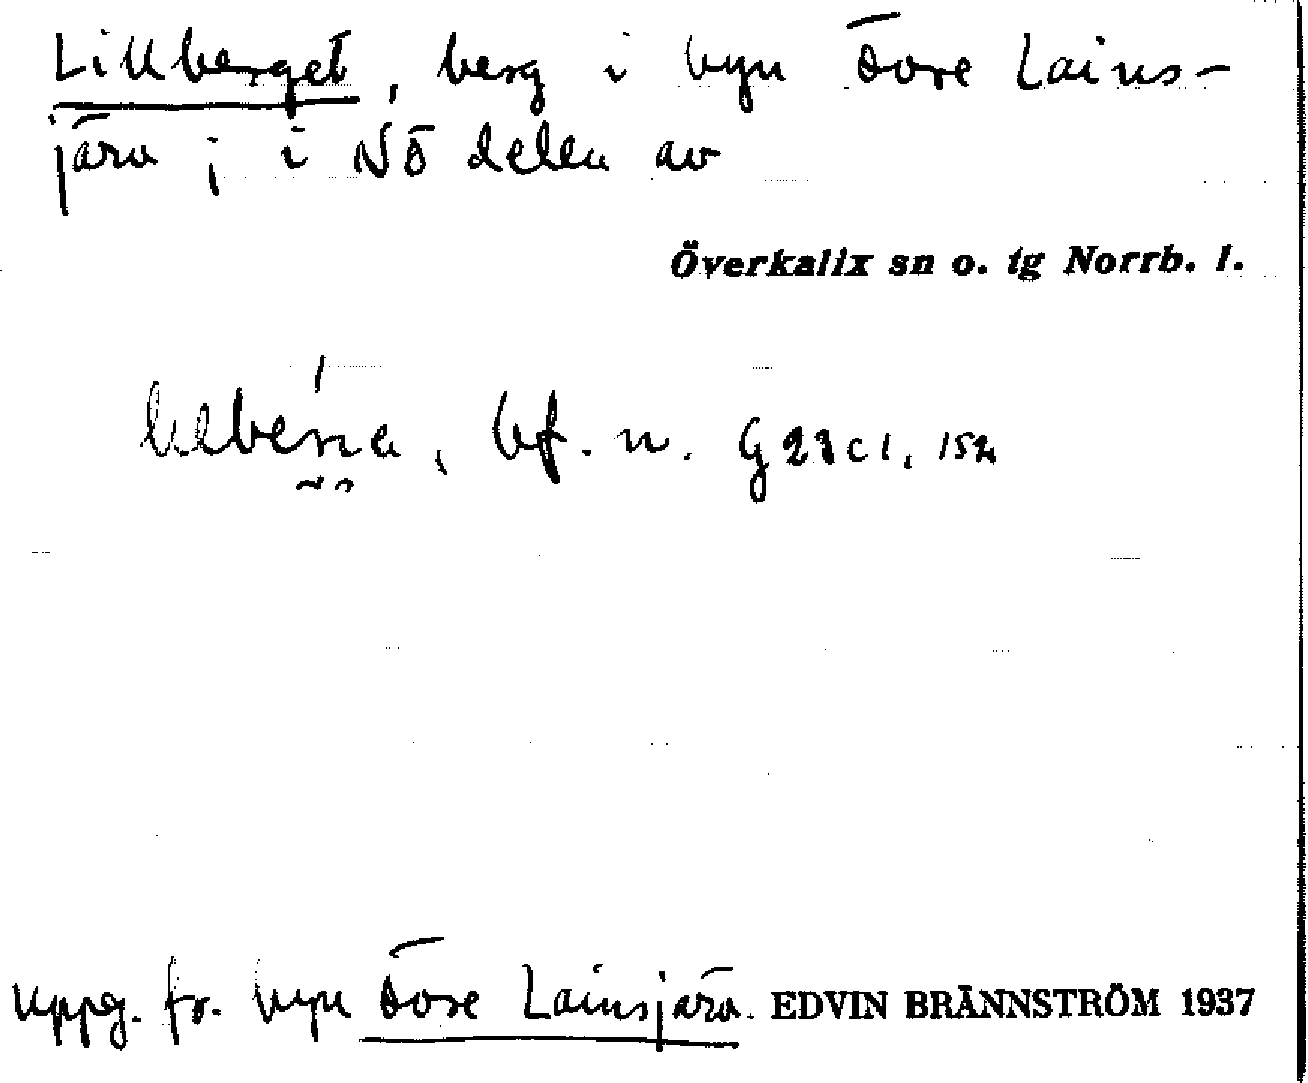 Lillberget, berg i byn Övre Lains-
järv ; i NÖ delen av
Överkalix sn o. tg Norrb. l.
bf. n.
Uppg. fr. byn Övre Lainsjärv. EDVIN BRÄNNSTRÖM 1937